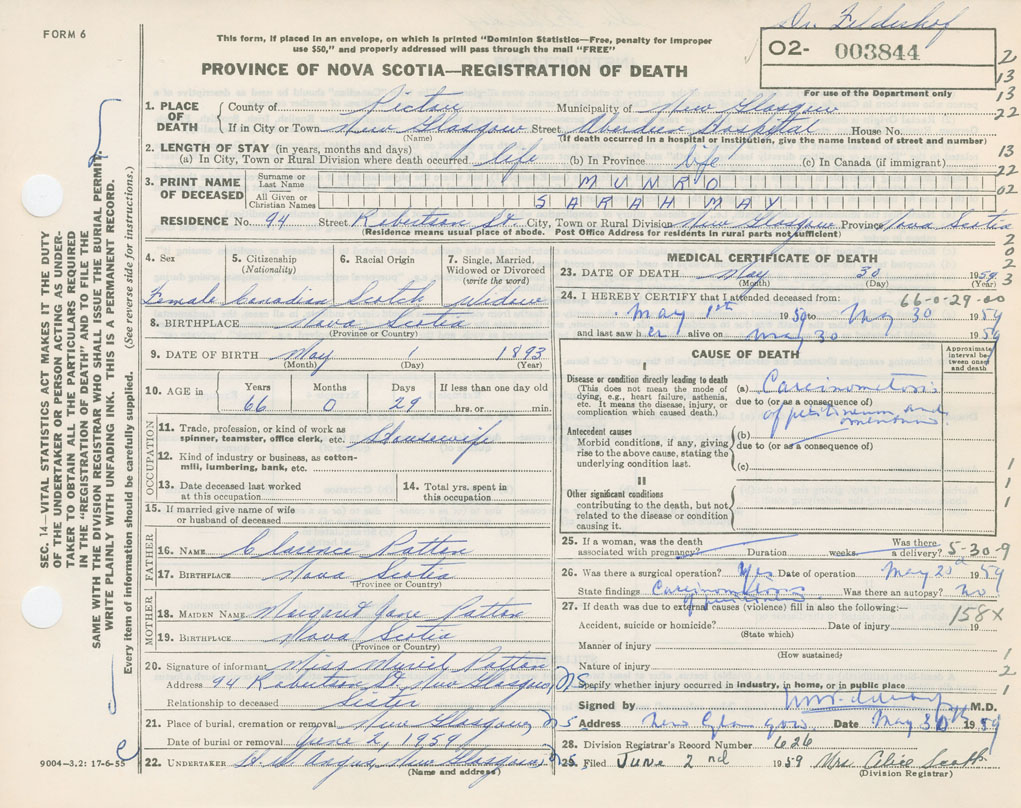 FORM 6
This form, if placed in an envelope, on which is printed "Dominion Statistics—Free, penalty for improper
use $50," and properly addressed will pass through the mail "FREE"
PROVINCE OF NOVA SCOTIA—REGISTRATION OF DEATH
Dr. Felderhof
O2- 003844
For use of the Department only
2
13
22
13
22
02
2
0
2
3
SEC. 14—VITAL STATISTICS ACT MAKES IT THE DUTY
OF THE UNDERTAKER OR PERSON ACTING AS UNDER-
TAKER TO OBTAIN ALL THE PARTICULARS REQUIRED
IN THE "REGISTRATION OF DEATH" AND TO FILE THE
SAME WITH THE DIVISION REGISTRAR WHO SHALL ISSUE THE BURIAL PERMIT.
WRITE PLAINLY WITH UNFADING INK. THIS IS A PERMANENT RECORD.
Every item of information should be carefully supplied. (See reverse side for instructions.)
1. PLACE OF DEATH County of Pictou Municipality of New Glasgow
If in City or Town New Glasgow Street Aberdeen Hospital House No.
(Name) (If death occurred in a hospital or institution, give the name instead of street and number)
2. LENGTH OF STAY (in years, months and days)
(a) In City, Town or Rural Division where death occurred life (b) In Province life (c) In Canada (if immigrant)
3. PRINT NAME OF DECEASED Surname or Last Name MUNRO
All Given or Christian Names SARAH MAY
RESIDENCE No. 94 Street Robertson St. City, Town or Rural Division New Glasgow Province Nova Scotia
(Residence means usual place of abode. Post Office Address for residents in rural parts not sufficient)
4. Sex 5. Citizenship (Nationality) 6. Racial Origin 7. Single, Married, Widowed or Divorced (write the word)
Female Canadian Scotch Widow
8. BIRTHPLACE Nova Scotia
(Province or Country)
9. DATE OF BIRTH May 1 1893
(Month) (Day) (Year)
10. AGE in Years Months Days If less than one day old
66 0 29 hrs. or min.
OCCUPATION
11. Trade, profession, or kind of work as spinner, teamster, office clerk, etc. Housewife
12. Kind of industry or business, as cotton-mill, lumbering, bank, etc.
13. Date deceased last worked at this occupation 14. Total yrs. spent in this occupation
15. If married give name of wife or husband of deceased
FATHER
16. NAME Clarence Patton
17. BIRTHPLACE Nova Scotia
(Province or Country)
MOTHER
18. MAIDEN NAME Margret Jane Patton
19. BIRTHPLACE Nova Scotia
(Province or Country)
20. Signature of informant Miss Muriel Patton
Address 94 Robertson St. New Glasgow, NS
Relationship to deceased Sister
21. Place of burial, cremation or removal New Glasgow, NS
Date of burial or removal June 2, 1959
22. UNDERTAKER H. W. Angus, New Glasgow, NS
(Name and address)
9004—3.2: 17-6-55
MEDICAL CERTIFICATE OF DEATH
23. DATE OF DEATH May 30 1959
(Month) (Day) (Year)
24. I HEREBY CERTIFY that I attended deceased from: 66-0-29-00
May 1st 1959 to May 30 1959
and last saw her alive on May 30 1959
CAUSE OF DEATH
Approximate interval between onset and death
I
Disease or condition directly leading to death
(This does not mean the mode of dying, e.g., heart failure, asthenia, etc. It means the disease, injury, or complication which caused death.)
(a) Carcinometosis
due to (or as a consequence of)
of peritineum and
omentum
Antecedent causes
Morbid conditions, if any, giving rise to the above cause, stating the underlying condition last.
(b)
due to (or as a consequence of)
(c)
II
Other significant conditions
contributing to the death, but not related to the disease or condition causing it.
1
1
1
25. If a woman, was the death associated with pregnancy? Duration weeks. Was there a delivery? 5-30-9
26. Was there a surgical operation? Yes Date of operation May 20th 1959
State findings Carcinometosis Was there an autopsy? No
27. If death was due to external causes (violence) fill in also the following:— 158X
Accident, suicide or homicide? Date of injury 19
(State which)
Manner of injury
(How sustained)
1
Nature of injury
2
Specify whether injury occurred in industry, in home, or in public place
1
Signed by M.D.
Address New Glasgow Date May 30th 1959
28. Division Registrar's Record Number 626
29. Filed June 2nd 1959 Mrs Alice Scott
(Division Registrar)